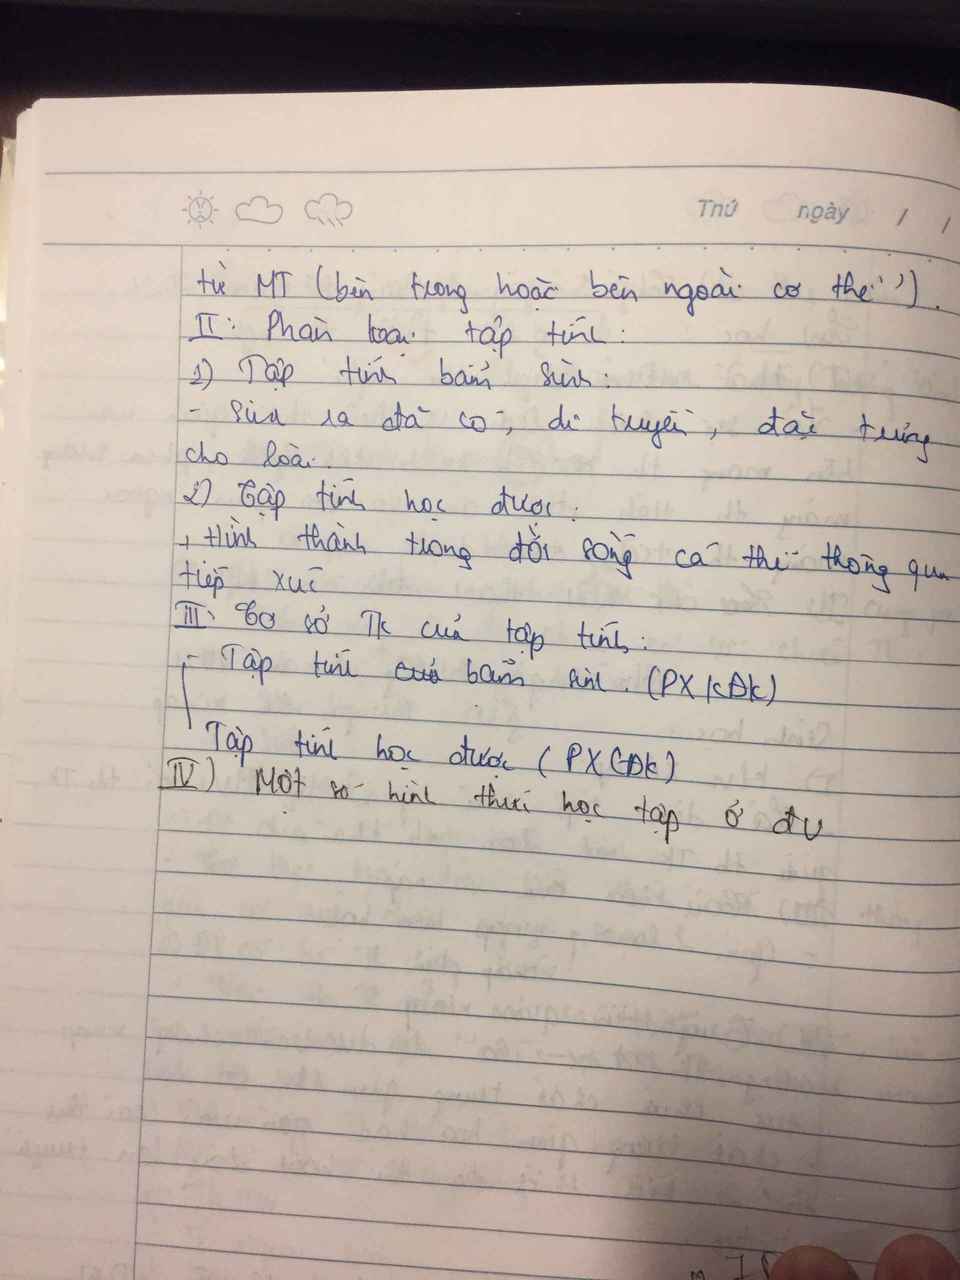 Thứ ngày / /
từ MT (bên trong hoặc bên ngoài cơ thể).
II: Phân loại tập tính:
1) Tập tính bẩm sinh:
- Sinh ra đã có, di truyền, đặc trưng
cho loài.
2) Tập tính học được:
+ Hình thành trong đời sống cá thể thông qua
tiếp xúc
III: Cơ sở TK của tập tính:
- Tập tính bẩm sinh. (PXKĐK)
Tập tính học được (PXCĐK)
IV) Một số hình thức học tập ở đv